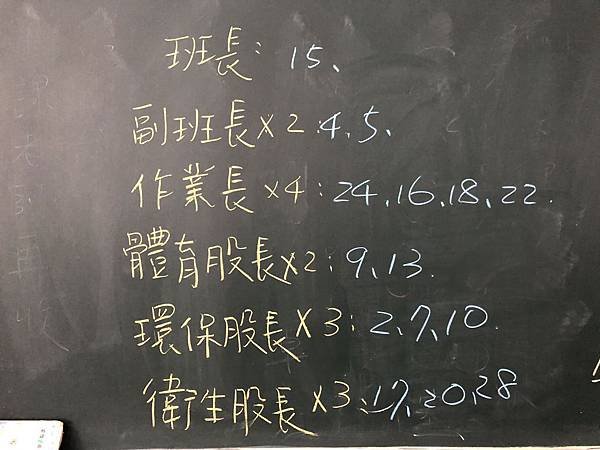 班長：15、
副班長×2：4、5、
作業長×4：24、16、18、22.
體育股長×2：9、13.
環保股長×3：2、7、10.
衛生股長×3：17、20、28